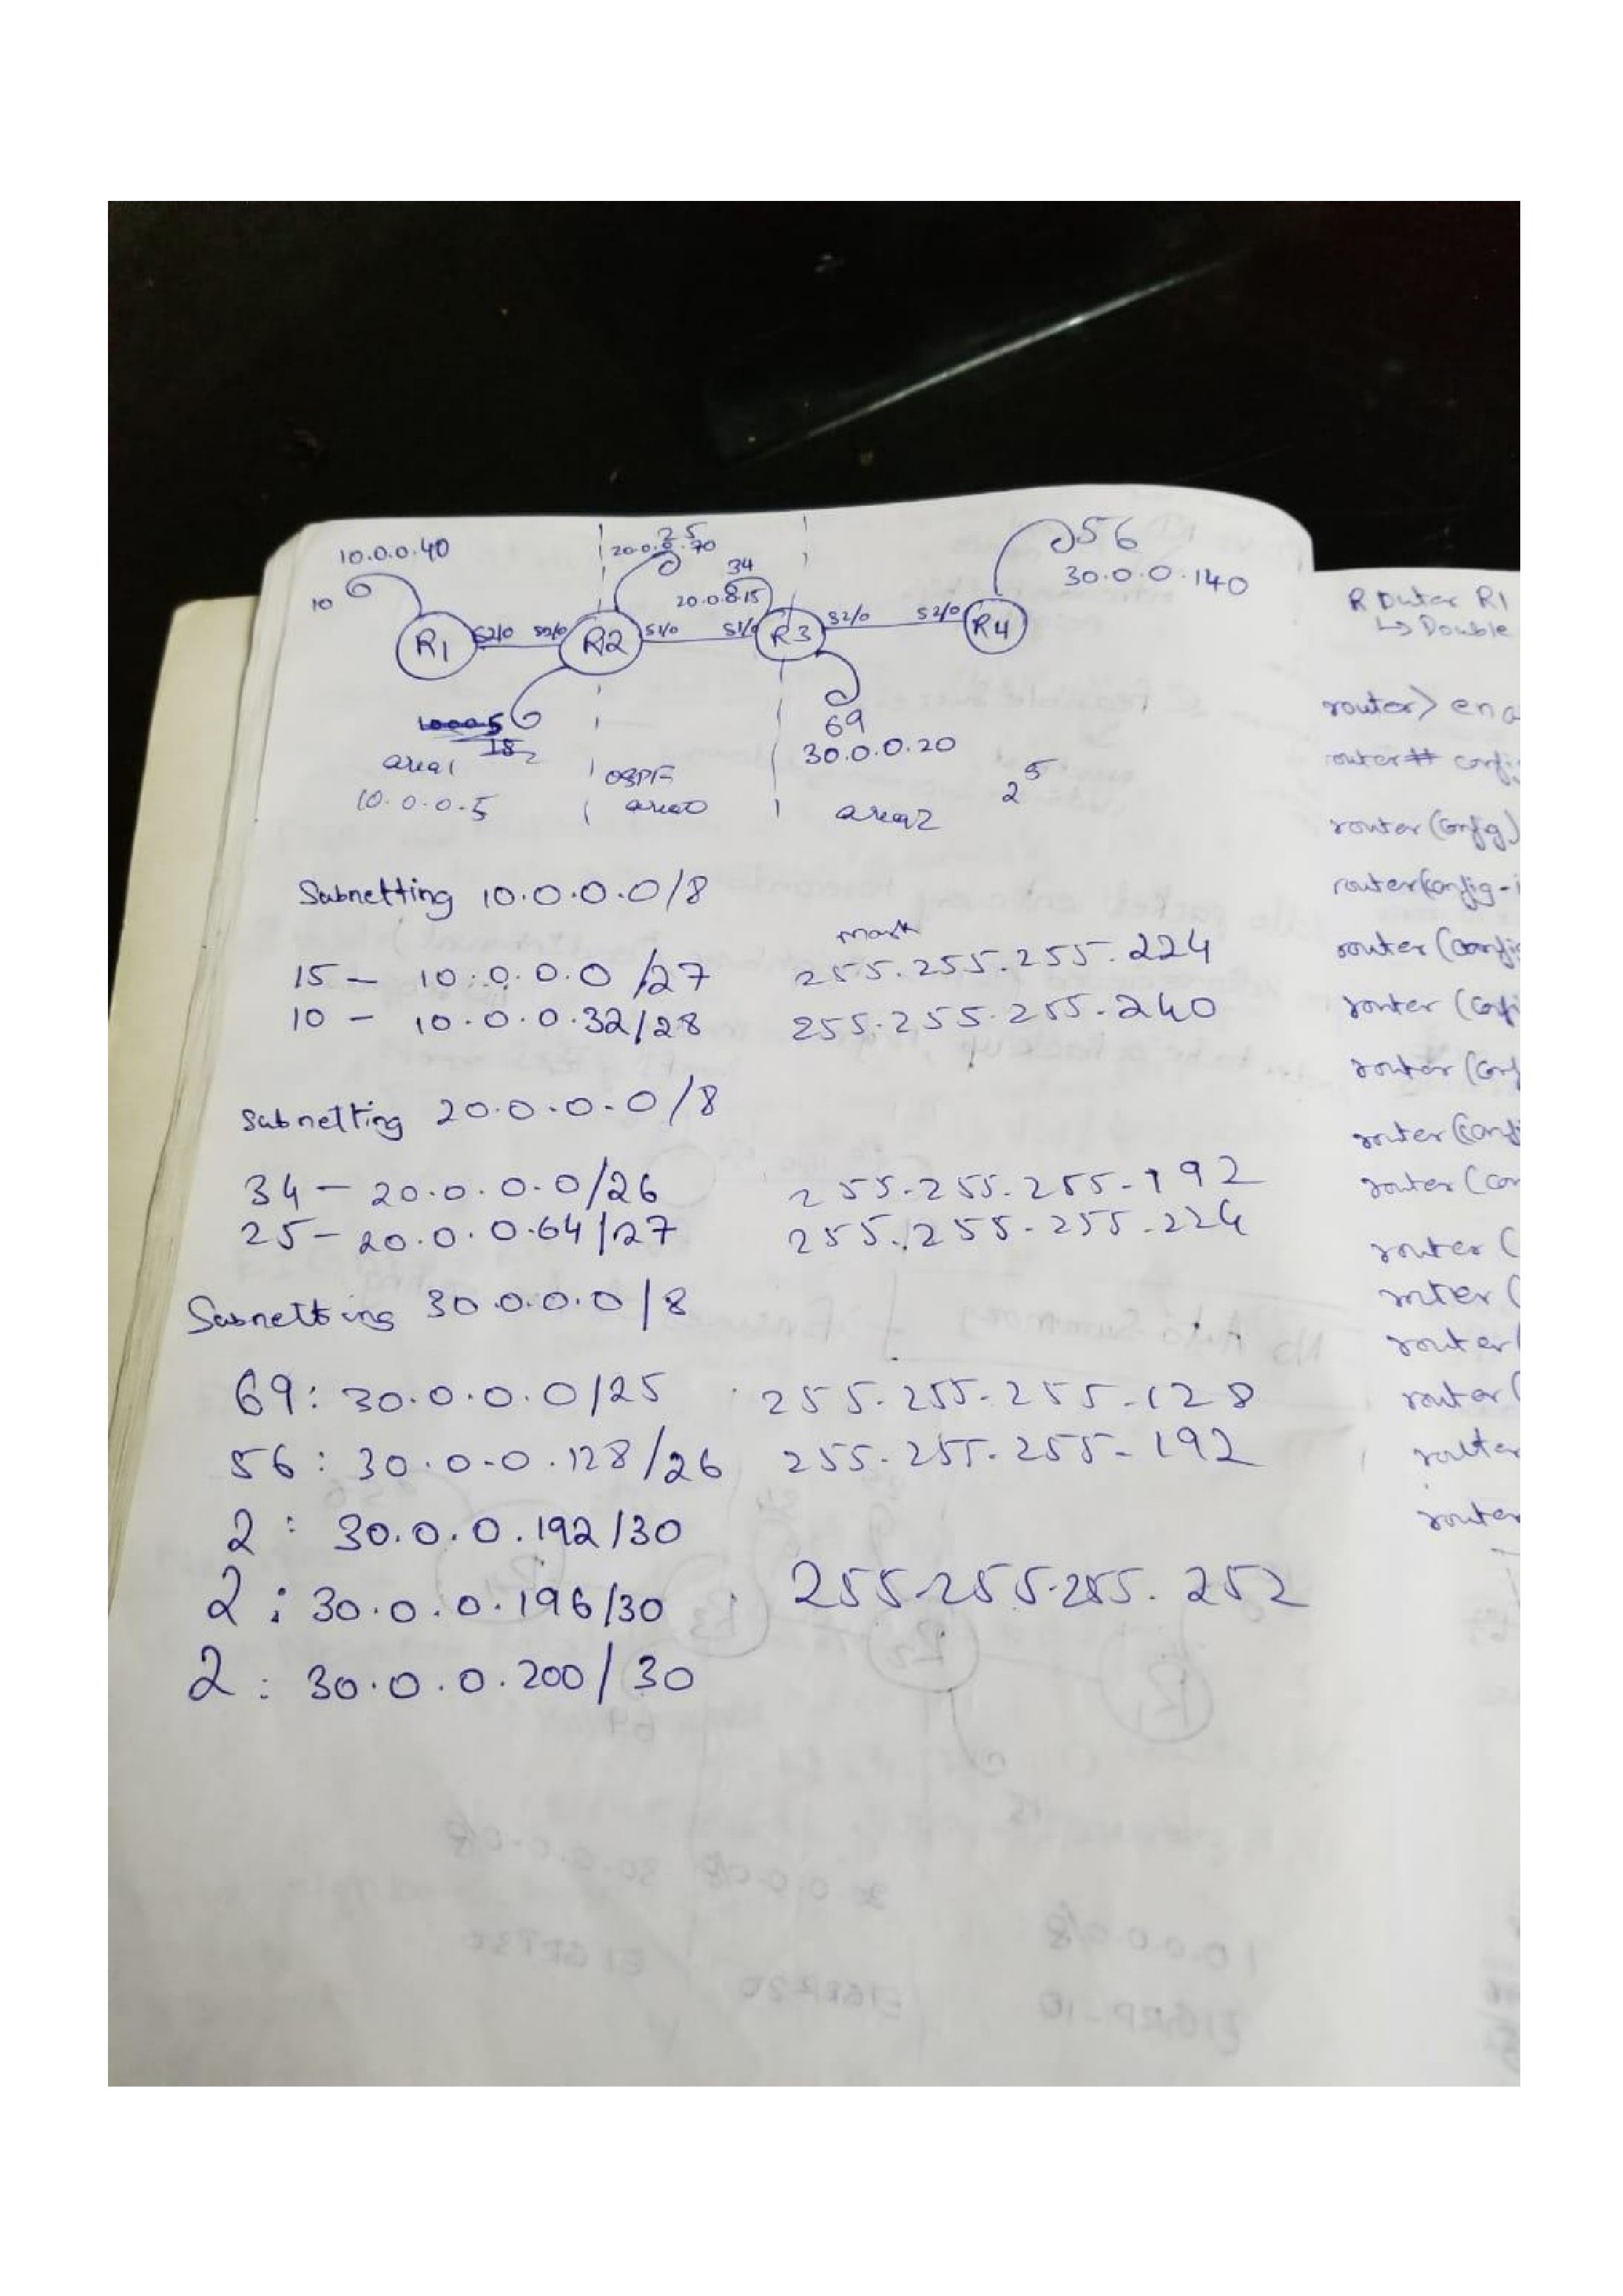 10.0.0.40
25
20.0.0.70
56
30.0.0.140
34
20.0.0.15
10
R1 S2/0 S2/0 R2 S1/0 S1/0 R3 S2/0 S2/0 R4
69
30.0.0.20
area1
OSPF
area0
area2
10.0.0.5
2 5
Subnetting 10.0.0.0/8
mask
15 - 10.0.0.0 /27 255.255.255.224
10 - 10.0.0.32/28 255.255.255.240
Subnetting 20.0.0.0/8
34 - 20.0.0.0/26 255.255.255.192
25 - 20.0.0.64/27 255.255.255.224
Subnetting 30.0.0.0/8
69: 30.0.0.0/25 255.255.255.128
56: 30.0.0.128/26 255.255.255.192
2: 30.0.0.192/30
2: 30.0.0.196/30 255.255.255.252
2: 30.0.0.200/30
Router R1
↳ Double
router> ena
router# config
router(config)
router(config-i
router (config
router (confi
router (conf
router (conf
router (con
router (
router (
router(
router (
router
router